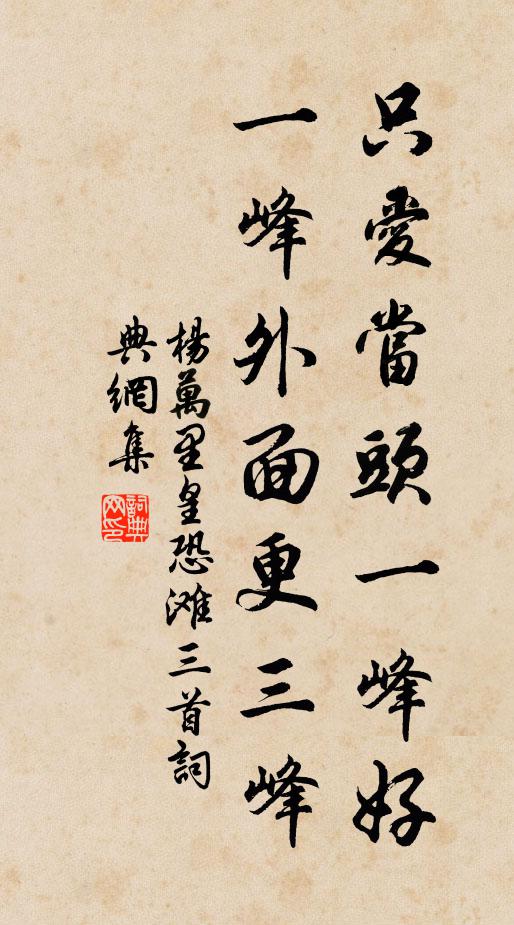 只愛當頭一峰好
一峰外面更三峰
楊萬里皇恐滩三首詞
典網集
詞典
网印